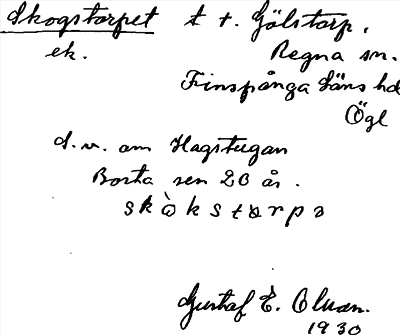 Skogstorpet t. t. Gölstorp.
ek. Regna sn.
Finspånga läns hd
Ögl
d. v. om Hagstugan
Borta sen 20 år.
skòkstorpə
Gustaf E. Olsson.
1930